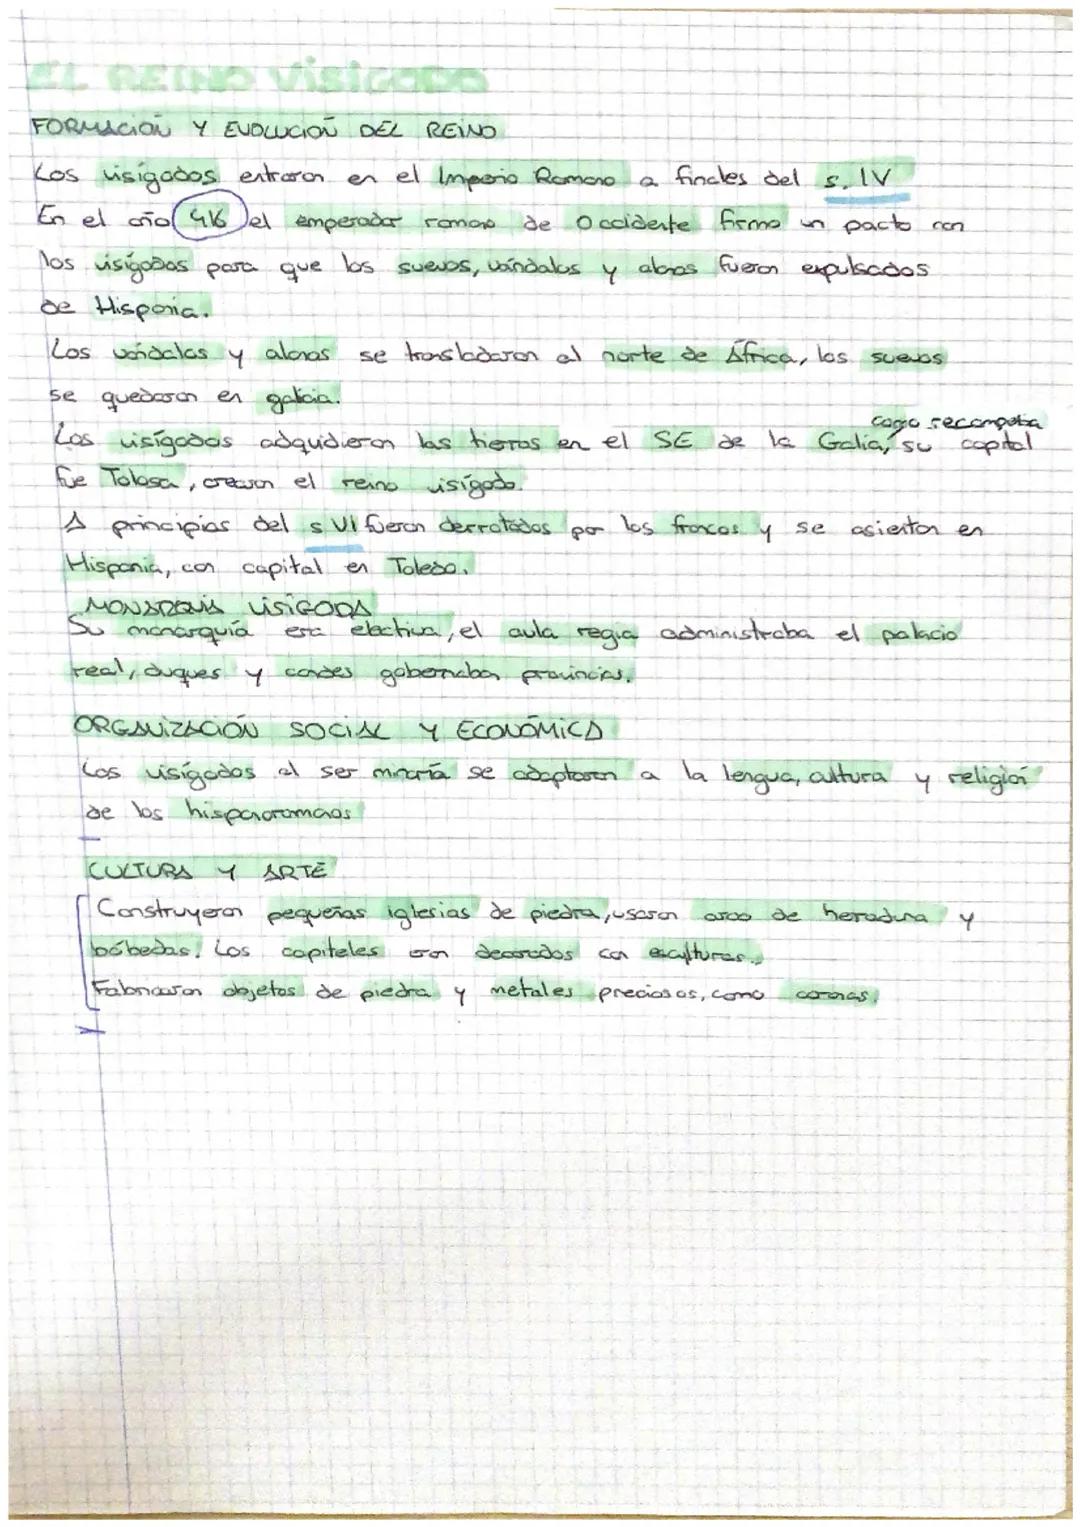 EL REINO VISIGODO
FORMACIÓN Y EVOLUCIÓN DEL REINO
Los visigodos entraron en el Imperio Romano a finales del s. IV
En el año 416 el emperador romano de Occidente firmo un pacto con
los visigodos para que los suevos, vándalos y alanos fueron expulsados
de Hispania.
Los vándalos y alanos se transladaron al norte de África, los suevos
se quedaron en galicia.
como recompensa
Los visigodos adquidieron las tierras en el SE de la Galia, su capital
fue Tolosa, crearon el reino visigodo.
A principios del s VI fueron derrotados por los francos y se asientan en
Hispania, con capital en Toledo.
MONARQUÍA VISIGODA
Su monarquía era electiva, el aula regia administraba el palacio
real, duques y condes gobernaban provincias.
ORGANIZACIÓN SOCIAL Y ECONÓMICA
Los visigodos al ser minoría se adaptaron a la lengua, cultura y religión
de los hispanoromanos
CULTURA Y ARTE
Construyeron pequeñas iglesias de piedra, usaron arco de herradura y
bóbedas. Los capiteles eran decorados con esculturas.
Fabricaron objetos de piedra y metales preciosos, como coronas.